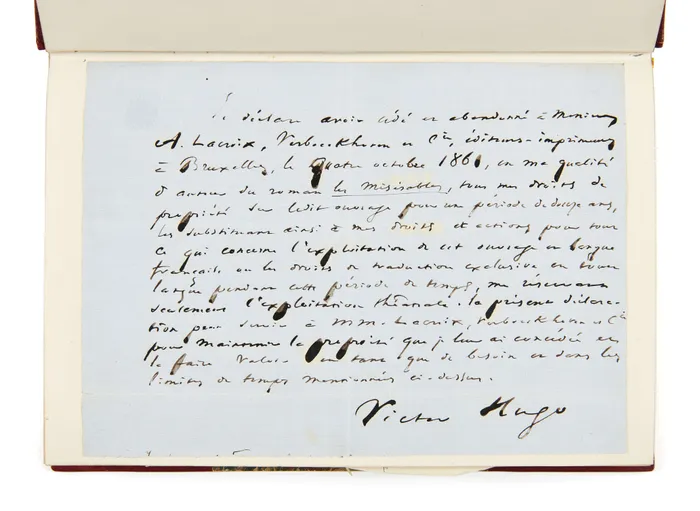 Je déclare avoir cédé et abandonné à Messieurs
A. Lacroix, Verboeckhoven et Cie, éditeurs-imprimeurs
à Bruxelles, le quatre octobre 1861, en ma qualité
d'auteur du roman les Misérables, tous mes droits de
propriété sur ledit ouvrage pour une période de douze ans,
les substituant ainsi à mes droits et actions pour tout
ce qui concerne l'exploitation de cet ouvrage en langue
française, ou les droits de traduction exclusive en toute
langue pendant cette période de temps, me réservant
seulement l'exploitation théâtrale. la présente déclara-
tion pour servir à MM. Lacroix, Verboeckhoven et Cie
pour maintenir la propriété que je leur ai concédée et
la faire valoir en tant que de besoin et dans les
limites de temps mentionnées ci-dessus.
Victor Hugo